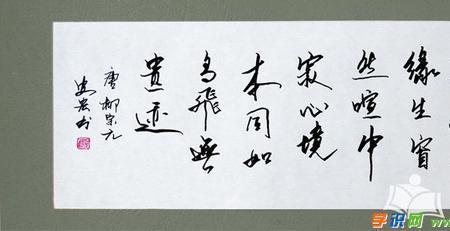 緣生窅
然喧中
寂心境
本同如
鳥飛無
遺迹
唐柳宗元
学识网